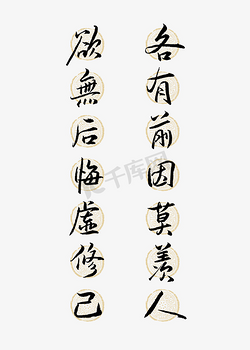 各有前因莫羡人
欲無后悔虚修己
千库网